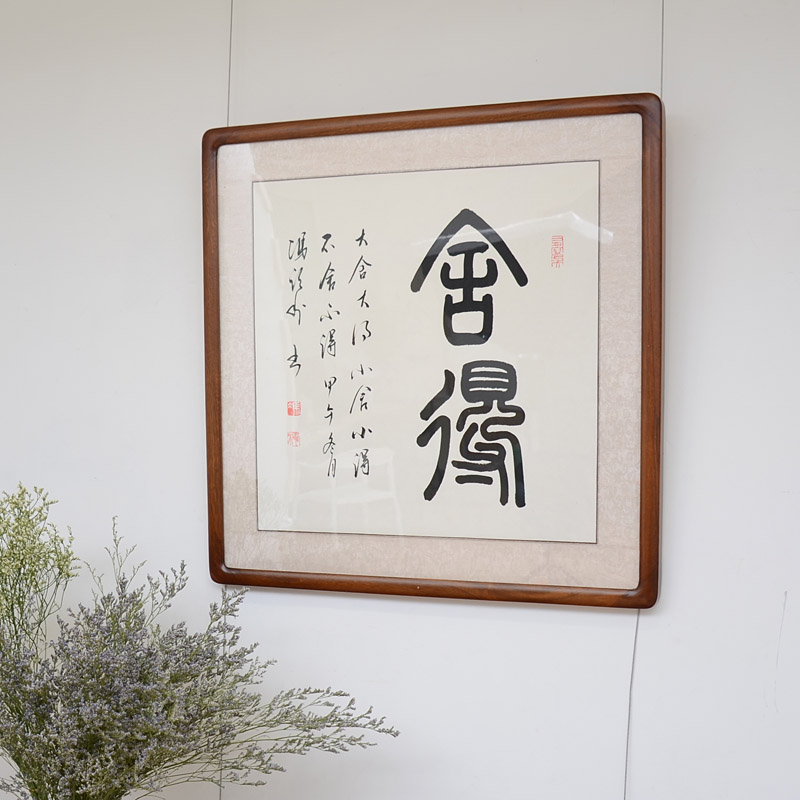 舍得
大舍大得小舍小得
不舍不得甲午冬月
书